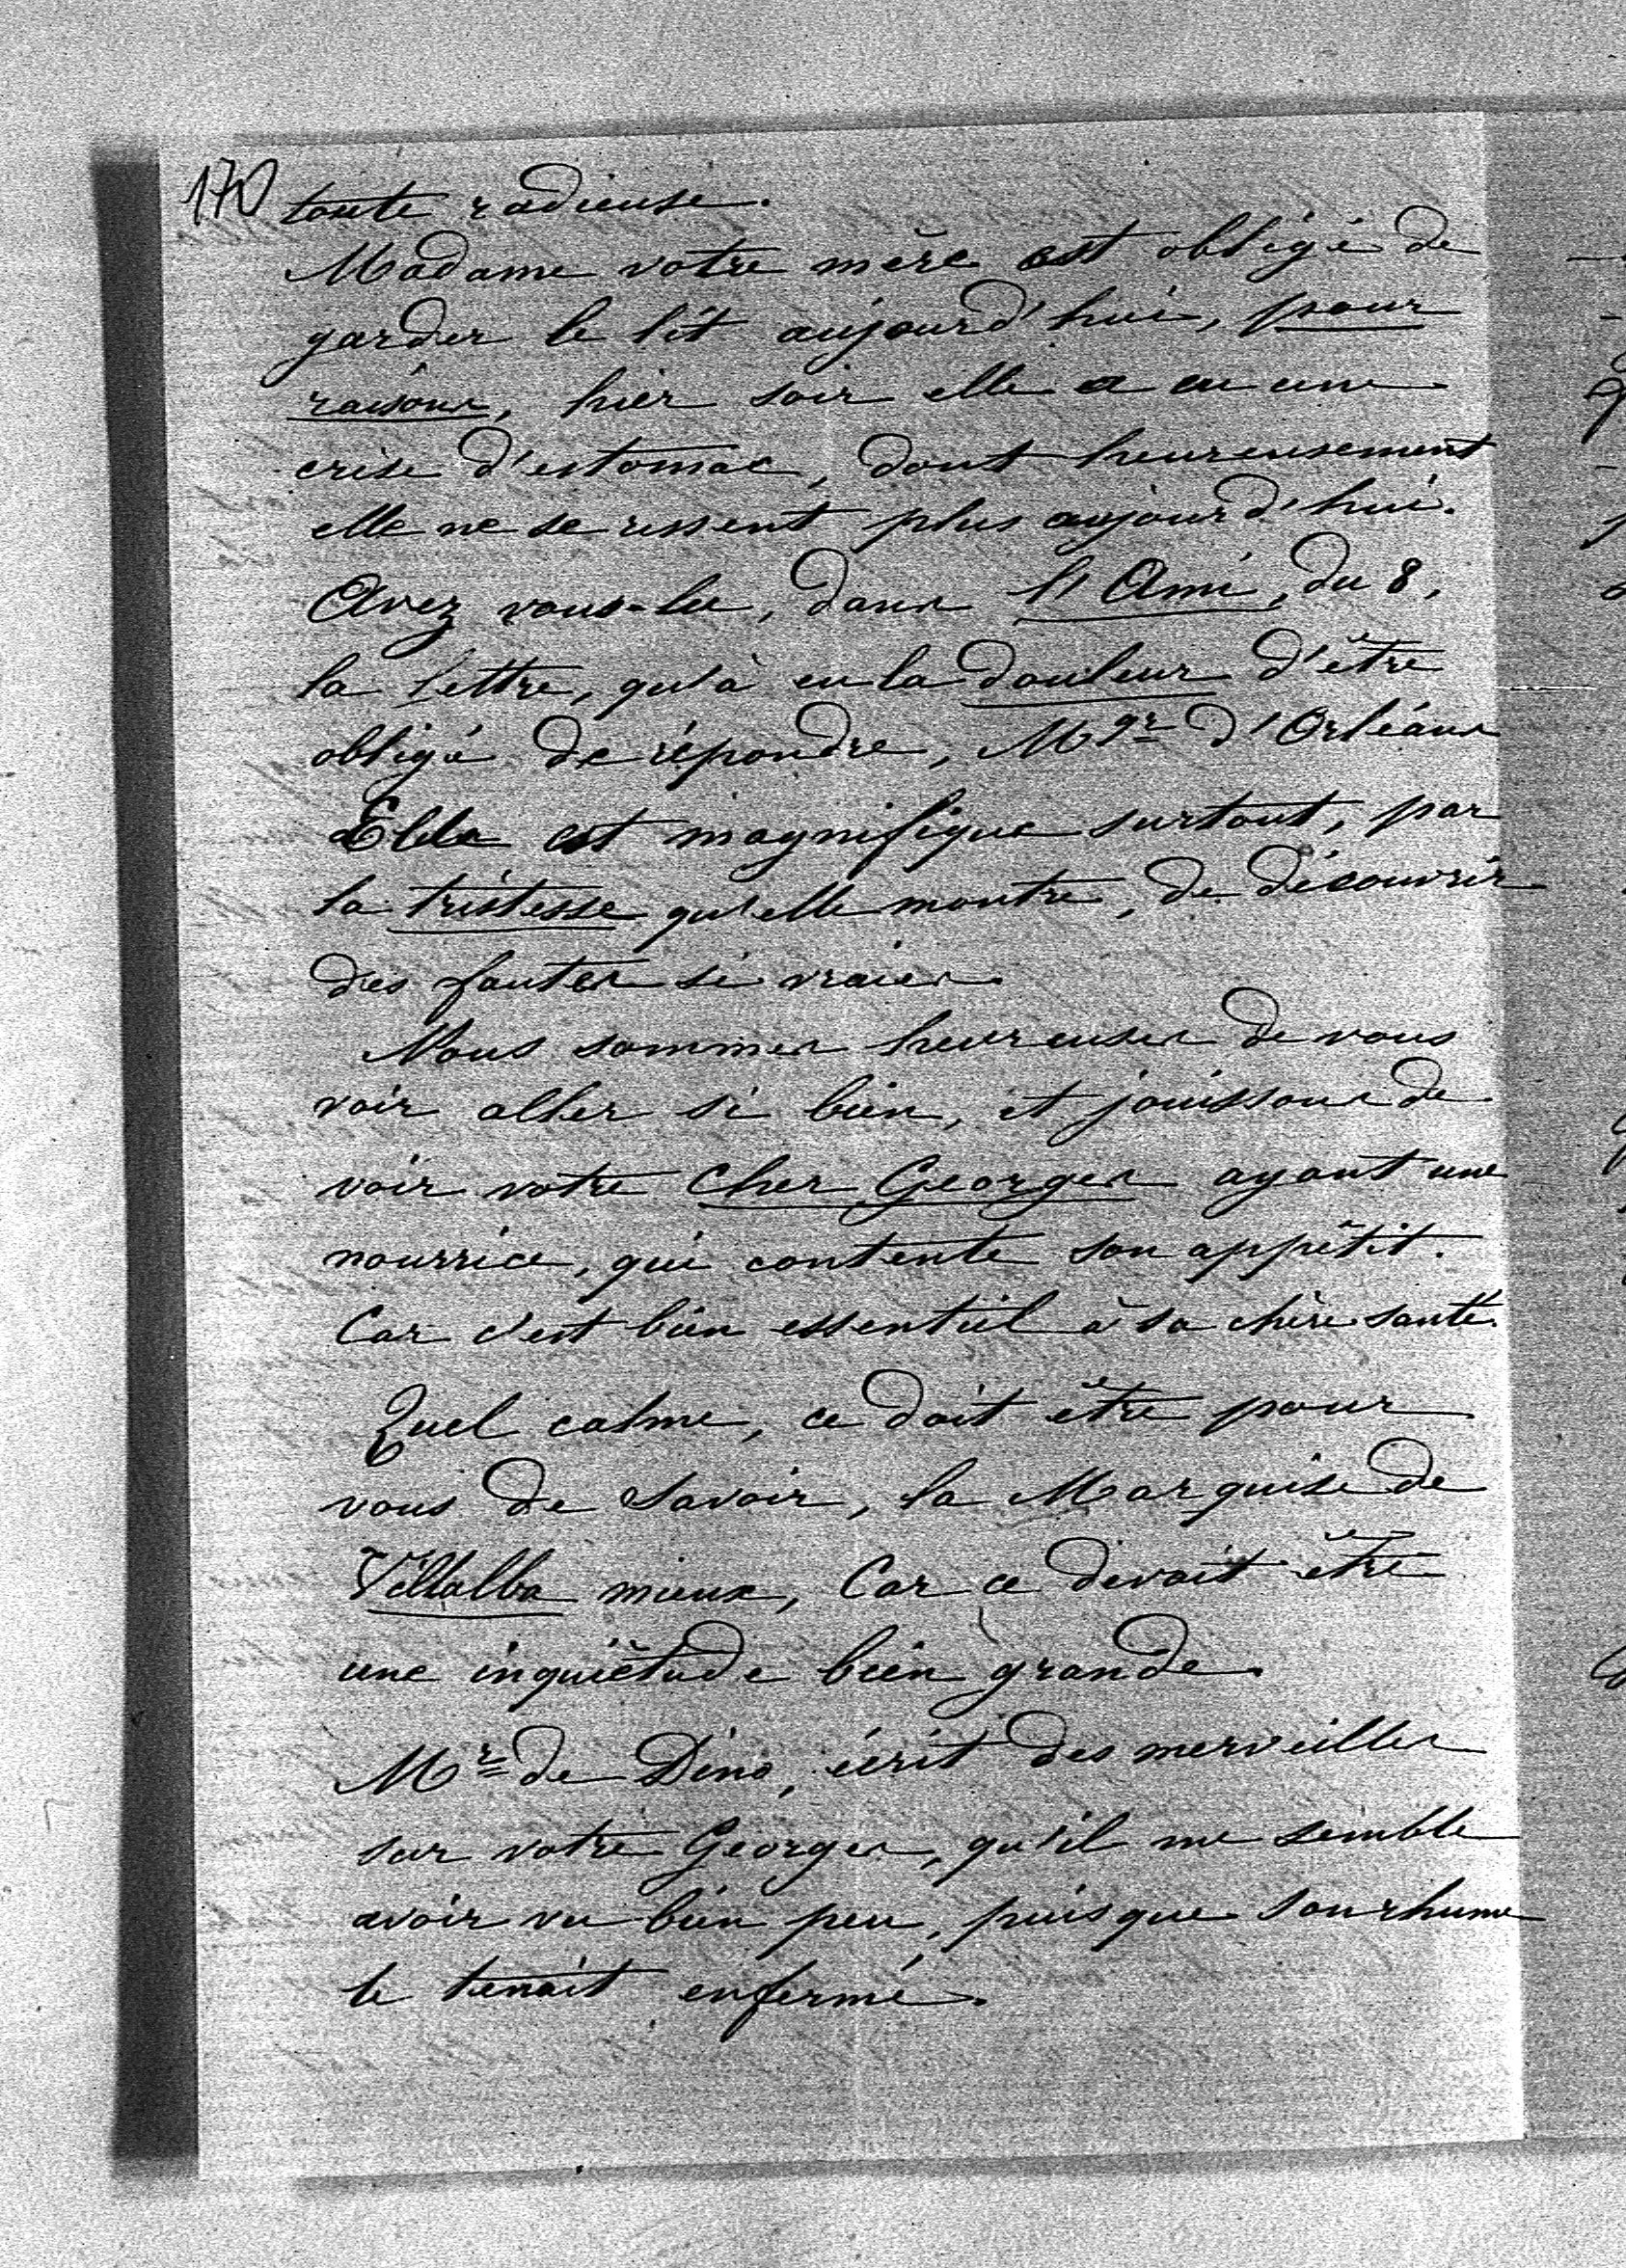 170 toute radieuse.
Madame votre mère est obligé de
garder le lit aujourd'hui, pour
raisons, hier soir elle a eu une
crise d'estomac, dont heureusement
elle ne se ressent plus aujourd'hui.
Avez vous-lu, dans l'Ami, du 8,
la lettre, qu'à eu la douleur d'être
obligé de répondre, Mgr d'Orléans
Elle est magnifique surtout, par
la tristesse qu'elle montre, de découvrir
des fautes si vraies.
Nous sommes heureuses de vous
voir aller si bien, et jouissons de
voir votre cher Georges ayant une
nourrice, qui contente son appétit.
Car c'est bien essentiel à sa chère santé.
Quel calme, ce doit être pour
vous de savoir, la Marquise de
Villalba mieux, Car ce devait être
une inquiètude bien grande.
Mr de Dino, écrit des merveilles
sur votre Georges, qu'il me semble
avoir vu bien peu, puisque son rhume
le tenait enfermé.